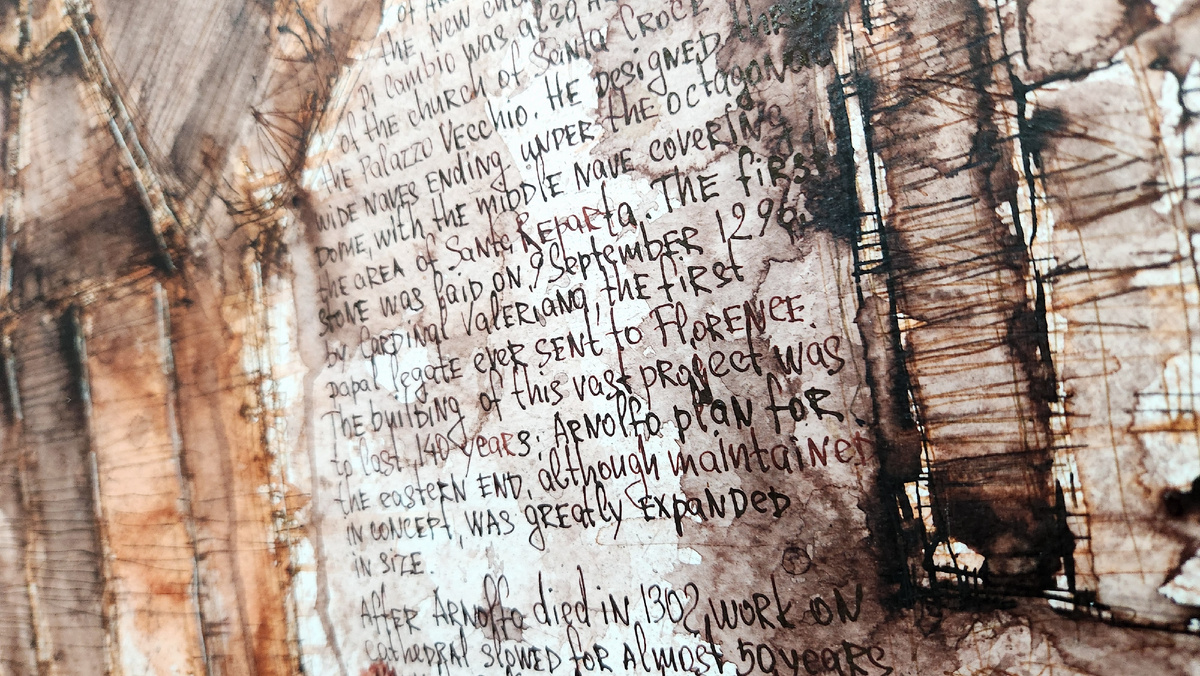 of
the new
Di Cambio was also
of the church of Santa Croce
the Palazzo Vecchio. He designed three
wide naves ending under the octagonal
dome, with the middle nave covering
the area of Santa Reparata. The first
stone was laid on 9 September 1296,
by Cardinal Valeriana, the first
papal legate ever sent to Florence.
The building of this vast project was
to last 140 years; Arnolfo plan for
the eastern end, although maintained
in concept, was greatly expanded
in size.
After Arnolfo died in 1302, work on
cathedral slowed for almost 50 years